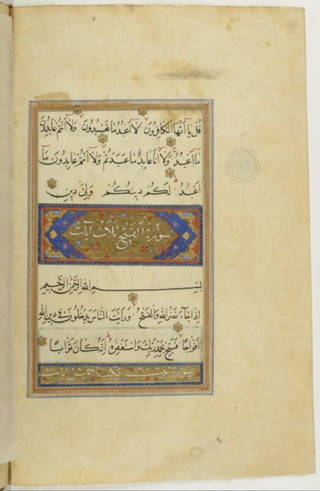 قُلْ يَا أَيُّهَا الْكَافِرُونَ لَا أَعْبُدُ مَا تَعْبُدُونَ وَلَا أَنْتُمْ عَابِدُونَ
مَا أَعْبُدُ وَلَا أَنَا عَابِدٌ مَا عَبَدْتُمْ وَلَا أَنْتُمْ عَابِدُونَ مَا
أَعْبُدُ لَكُمْ دِينُكُمْ وَلِيَ دِينِ
سورة الفتح ثلاث آيات
بِسْمِ اللهِ الرَّحْمٰنِ الرَّحِيمِ
إِذَا جَاءَ نَصْرُ اللهِ وَالْفَتْحُ وَرَأَيْتَ النَّاسَ يَدْخُلُونَ فِي دِينِ اللهِ
أَفْوَاجًا فَسَبِّحْ بِحَمْدِ رَبِّكَ وَاسْتَغْفِرْهُ إِنَّهُ كَانَ تَوَّابًا
سورة تبت مكية خمس آيات